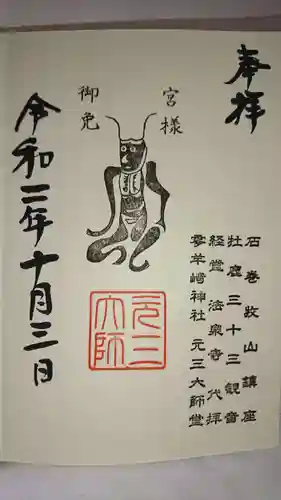 奉拝
宮様
御免
元三
大師
石巻牧山鎮座
牡鹿三十三観音
経堂法泉寺代拝
零羊崎神社元三大師堂
令和二年十月三日